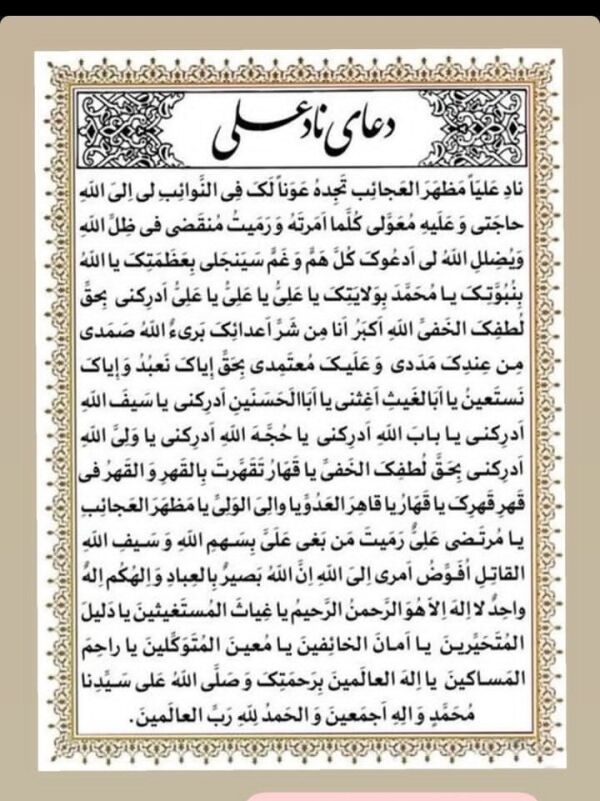 دعای ناد علی
نادِ عَلیَاً مَظهَرَ العَجائِب تَجِدهُ عَوناً لَکَ فِی النَّوائِب لی اِلیَ اللهِ
حاجَتی وَ عَلَیهِ مُعَوَّلی کُلَّما اَمَرتَهُ وَ رَمَیتُ مُنقَضی فی ظِلِّ اللهِ
وَیُضِللِ اللهُ لی اَدعُوکَ کُلَّ هَمٍّ وَ غَمٍّ سَیَنجَلی بِعَظَمَتِکَ یا اللهُ
بِنُبُوَّتِکَ یا مُحَمَّدَ بِوَلایَتِکَ یا عَلِیُّ یا عَلِیُّ یا عَلِیُّ اَدرِکنی بِحَقِّ
لُطفِکَ الخَفیِّ اللهِ اَکبَرُ اَنَا مِن شَرِّ اَعدائِکَ بَریءُ اللهُ صَمَدی
مِن عِندِکَ مَدَدی وَ عَلَیکَ مُعتَمِدی بِحَقِّ إیاکَ نَعبُدُ وَ إیاکَ
نَستَعینُ یا اَبَالغَیثِ اَغِثنی یا اَبَاالحَسَنَینِ اَدرِکنی یا سَیفَ اللهِ
اَدرِکنی یا بابَ اللهِ اَدرِکنی یا حُجَّهَ اللهِ اَدرِکنی یا وَلیَّ اللهِ
اَدرِکنی بِحَقِّ لُطفِکَ الخَفیِّ یا قَهّارُ تَقَهَّرتَ بِالقَهرِ وَ القَهرُ فی
قَهرِ قَهرِکَ یا قَهّارُ یا قاهِرَ العَدُوِّ یا والِیَ الوَلِیِّ یا مَظهَرَ العَجائِبِ
یا مُرتَضی عَلِیُّ رَمَیتَ مَن بَغی عَلَیَّ بِسَهمِ اللهِ وَ سَیفِ اللهِ
القاتِلِ اُفَوِّضُ اَمری اِلَی اللهِ اِنَّ اللهُ بَصیرٌ بِالعِبادِ وَ اِلهُکُم اِلهُ
واحِدٌ لا اِلهَ اِلاّ هُوَ الرَّحمنُ الرَّحیمُ یا غِیاثَ المُستَغیثینَ یا دَلیلَ
المُتَحَیِّرینَ یا اَمانَ الخائِفینَ یا مُعینَ المُتَوَکِّلینَ یا راحِمَ
المَساکینَ یا اِلهَ العالَمینَ بِرَحمَتِکَ وَ صَلَّی اللهُ عَلی سَیِّدِنا
مُحَمَّدٍ وَ الِهِ اَجمَعینَ وَ الحَمدُ لِلّهِ رَبِّ العالَمینَ.